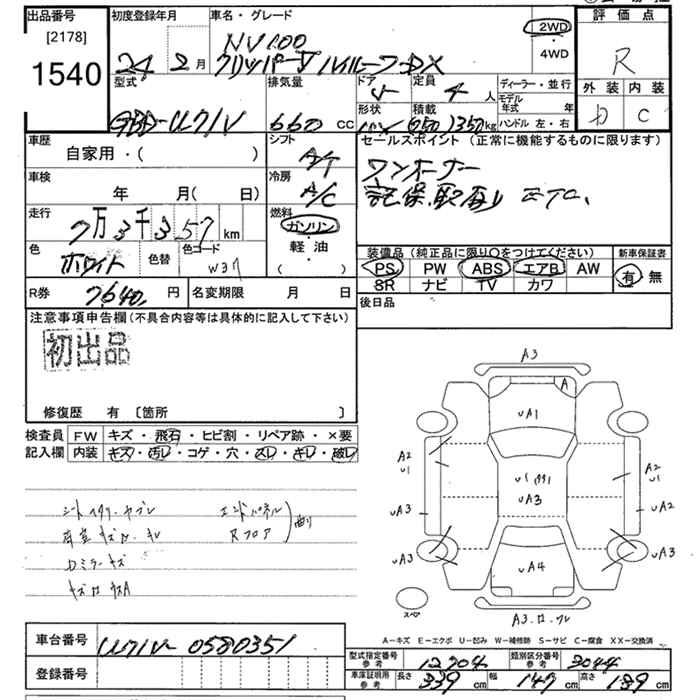 出品番号
[2178]
1540
初度登録年月
24 2月
車名・グレード
NV100
クリッパーV ハイルーフDX
2WD
・
4WD
評価点
R
外装 内装
D C
型式
GBD-U71V
排気量
660 cc
ドア
5
定員
4 人
形状
積載
350 kg
ディーラー・並行
モデル年式 年
ハンドル 左・右
車歴
自家用・( )
シフト
A/T
セールスポイント(正常に機能するものに限ります)
ワンオーナー
記 保 取有り ETC,
車検
年 月( 日)
冷房
A/C
走行
7万3千357 km
燃料
ガソリン
・
軽油
・
( )
色
ホワイト
色替
色コード
W37
装備品(純正品に限り○をつけてください)
PS PW ABS エアB AW
SR ナビ TV カワ
新車保証書
有 無
R券
7640, 円
名変期限 月 日
後日品
注意事項申告欄(不具合内容等は具体的に記入して下さい)
初出品
修復歴 有 〔箇所 〕
検査員
記入欄
FW キズ・飛石・ヒビ割・リペア跡・×要
内装 キズ・汚レ・コゲ・穴・スレ・キレ・破レ
シートヘタリ・ヤブレ
エンドパネル
Rフロア
曲り
荷室キズ
ミラーキズ
A3
A
UA1
A2
U1
A2
U1
UA3
UA3
UA2
UA3
UA3
UA4
A3
スペア
A-キズ E-エクボ U-凹み W-補修跡 S-サビ C-腐食 XX-交換済
車台番号
U71V-0580351
登録番号
型式指定番号
参考
12904
類別区分番号
参考
3044
車庫証明用
参考
長さ 339 cm
幅 147 cm
高さ 189 cm